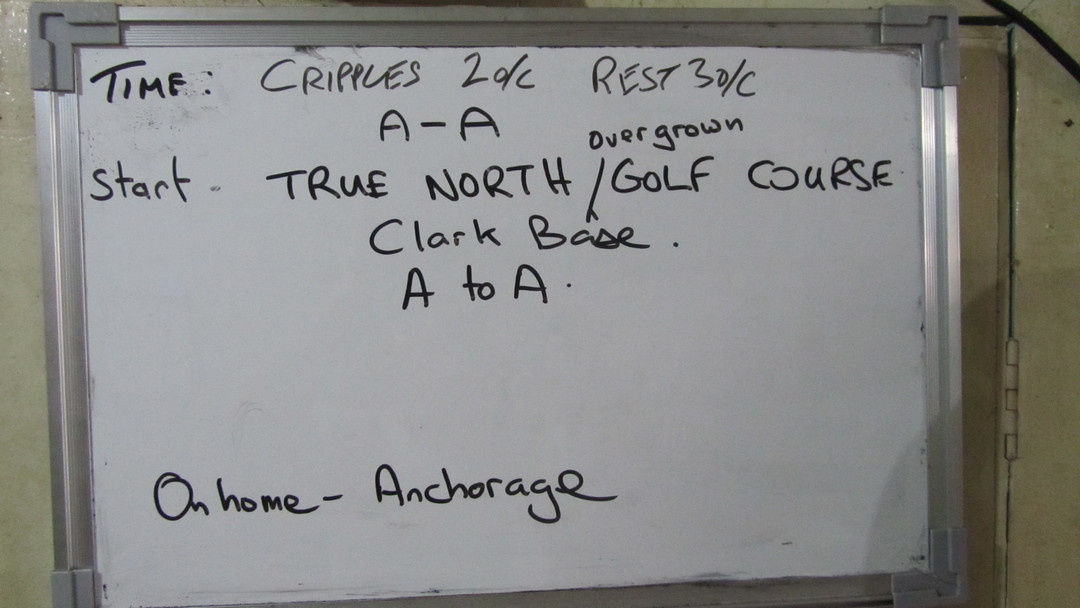 TIME: CRIPPLES 2 o/c REST 3 o/c
A-A
overgrown
Start. TRUE NORTH / GOLF COURSE.
Clark Base.
A to A.
On home - Anchorage